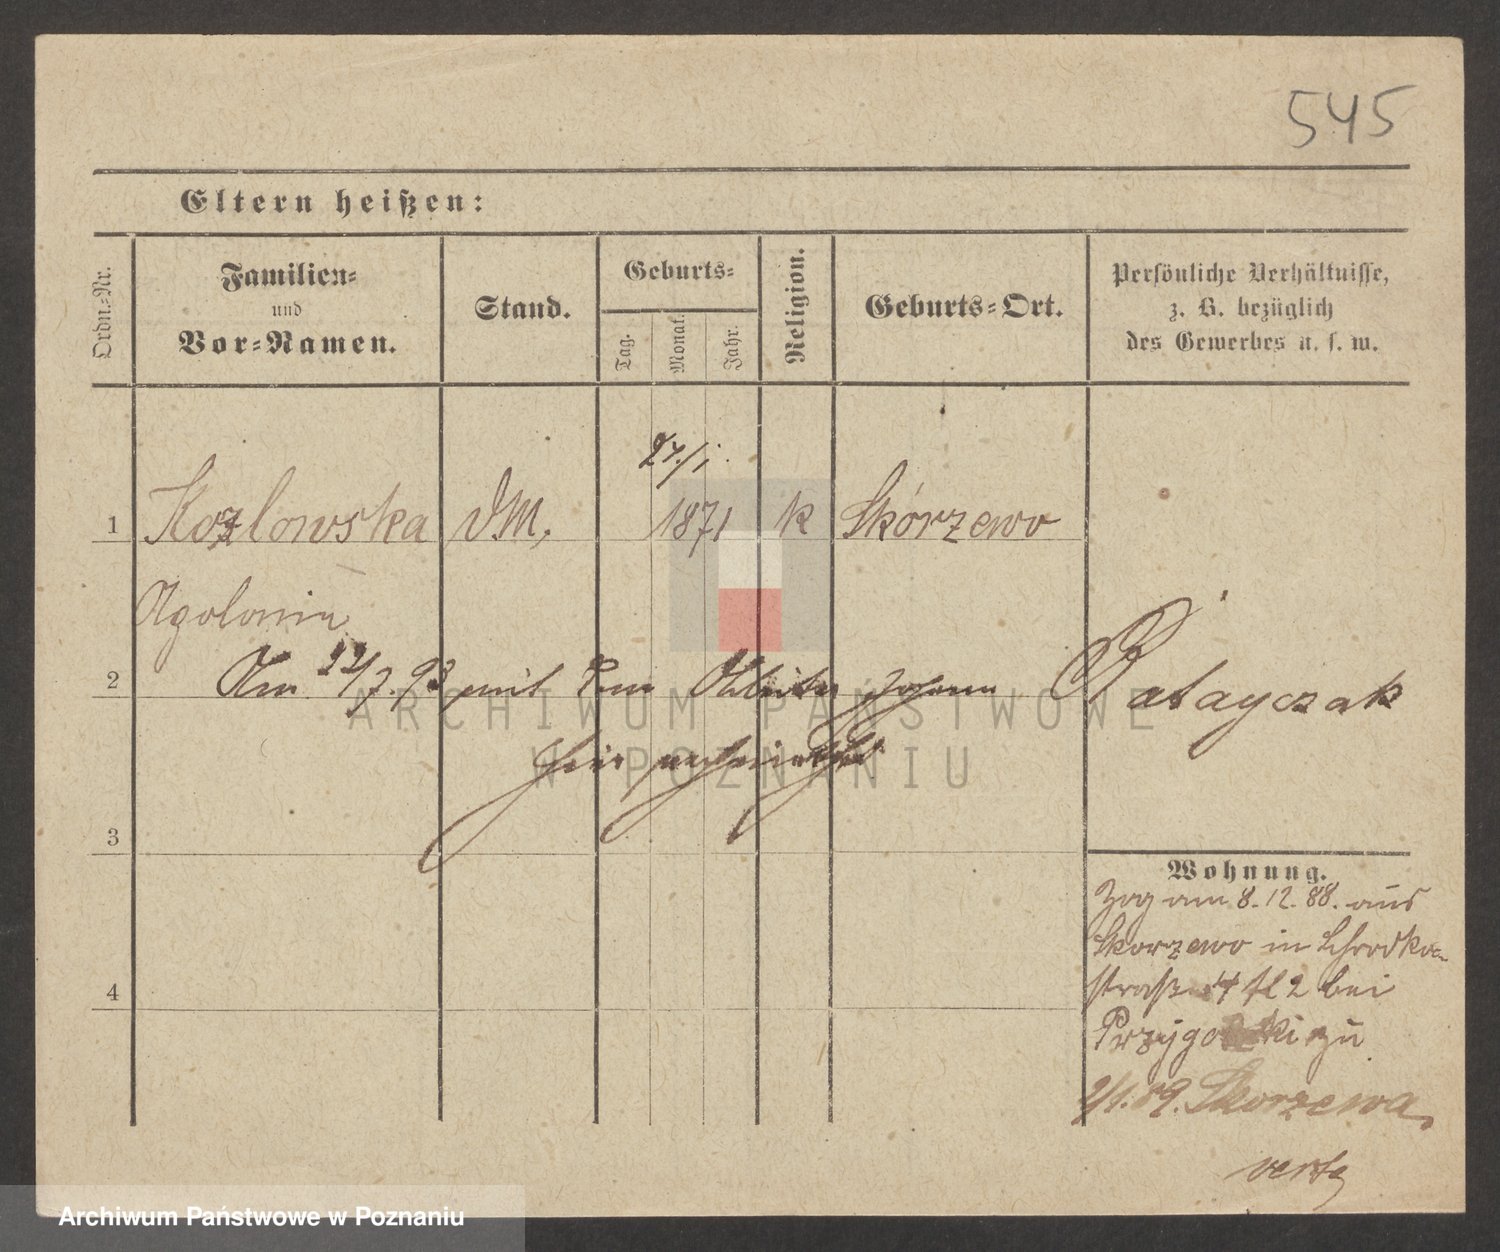 545
Eltern heißen:
Ordn.-Nr.
Familien-
und
Vor-Namen.
Stand.
Geburts-
Tag.
Monat.
Jahr.
Religion.
Geburts-Ort.
Persönliche Verhältnisse,
z. B. bezüglich
des Gewerbes u. s. w.
27./1.
1 Kozlowska DM. 1871 k Skórzewo
Apolonia
2 Am 12/7. 93 mit dem Arbeiter Johann Ratayczak
hier verheirathet
3
Wohnung.
Zog am 8. 12. 88. aus
Skorzewo in Schrodka-
straße 4 bei
zu
2/1. 89. Skorzewa
4
verte
ARCHIWUM PAŃSTWOWE
W POZNANIU
Archiwum Państwowe w Poznaniu